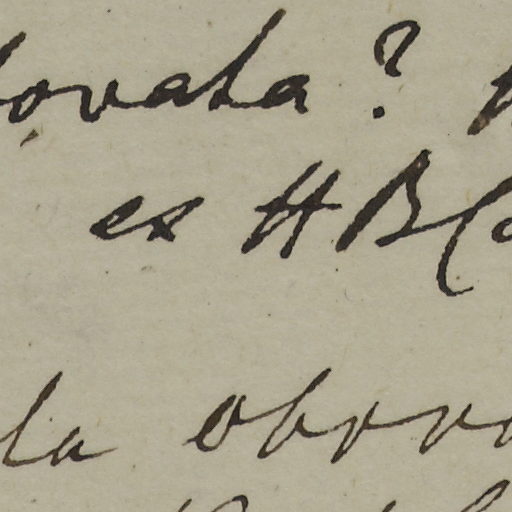 ovata ?
ex HB
la obov